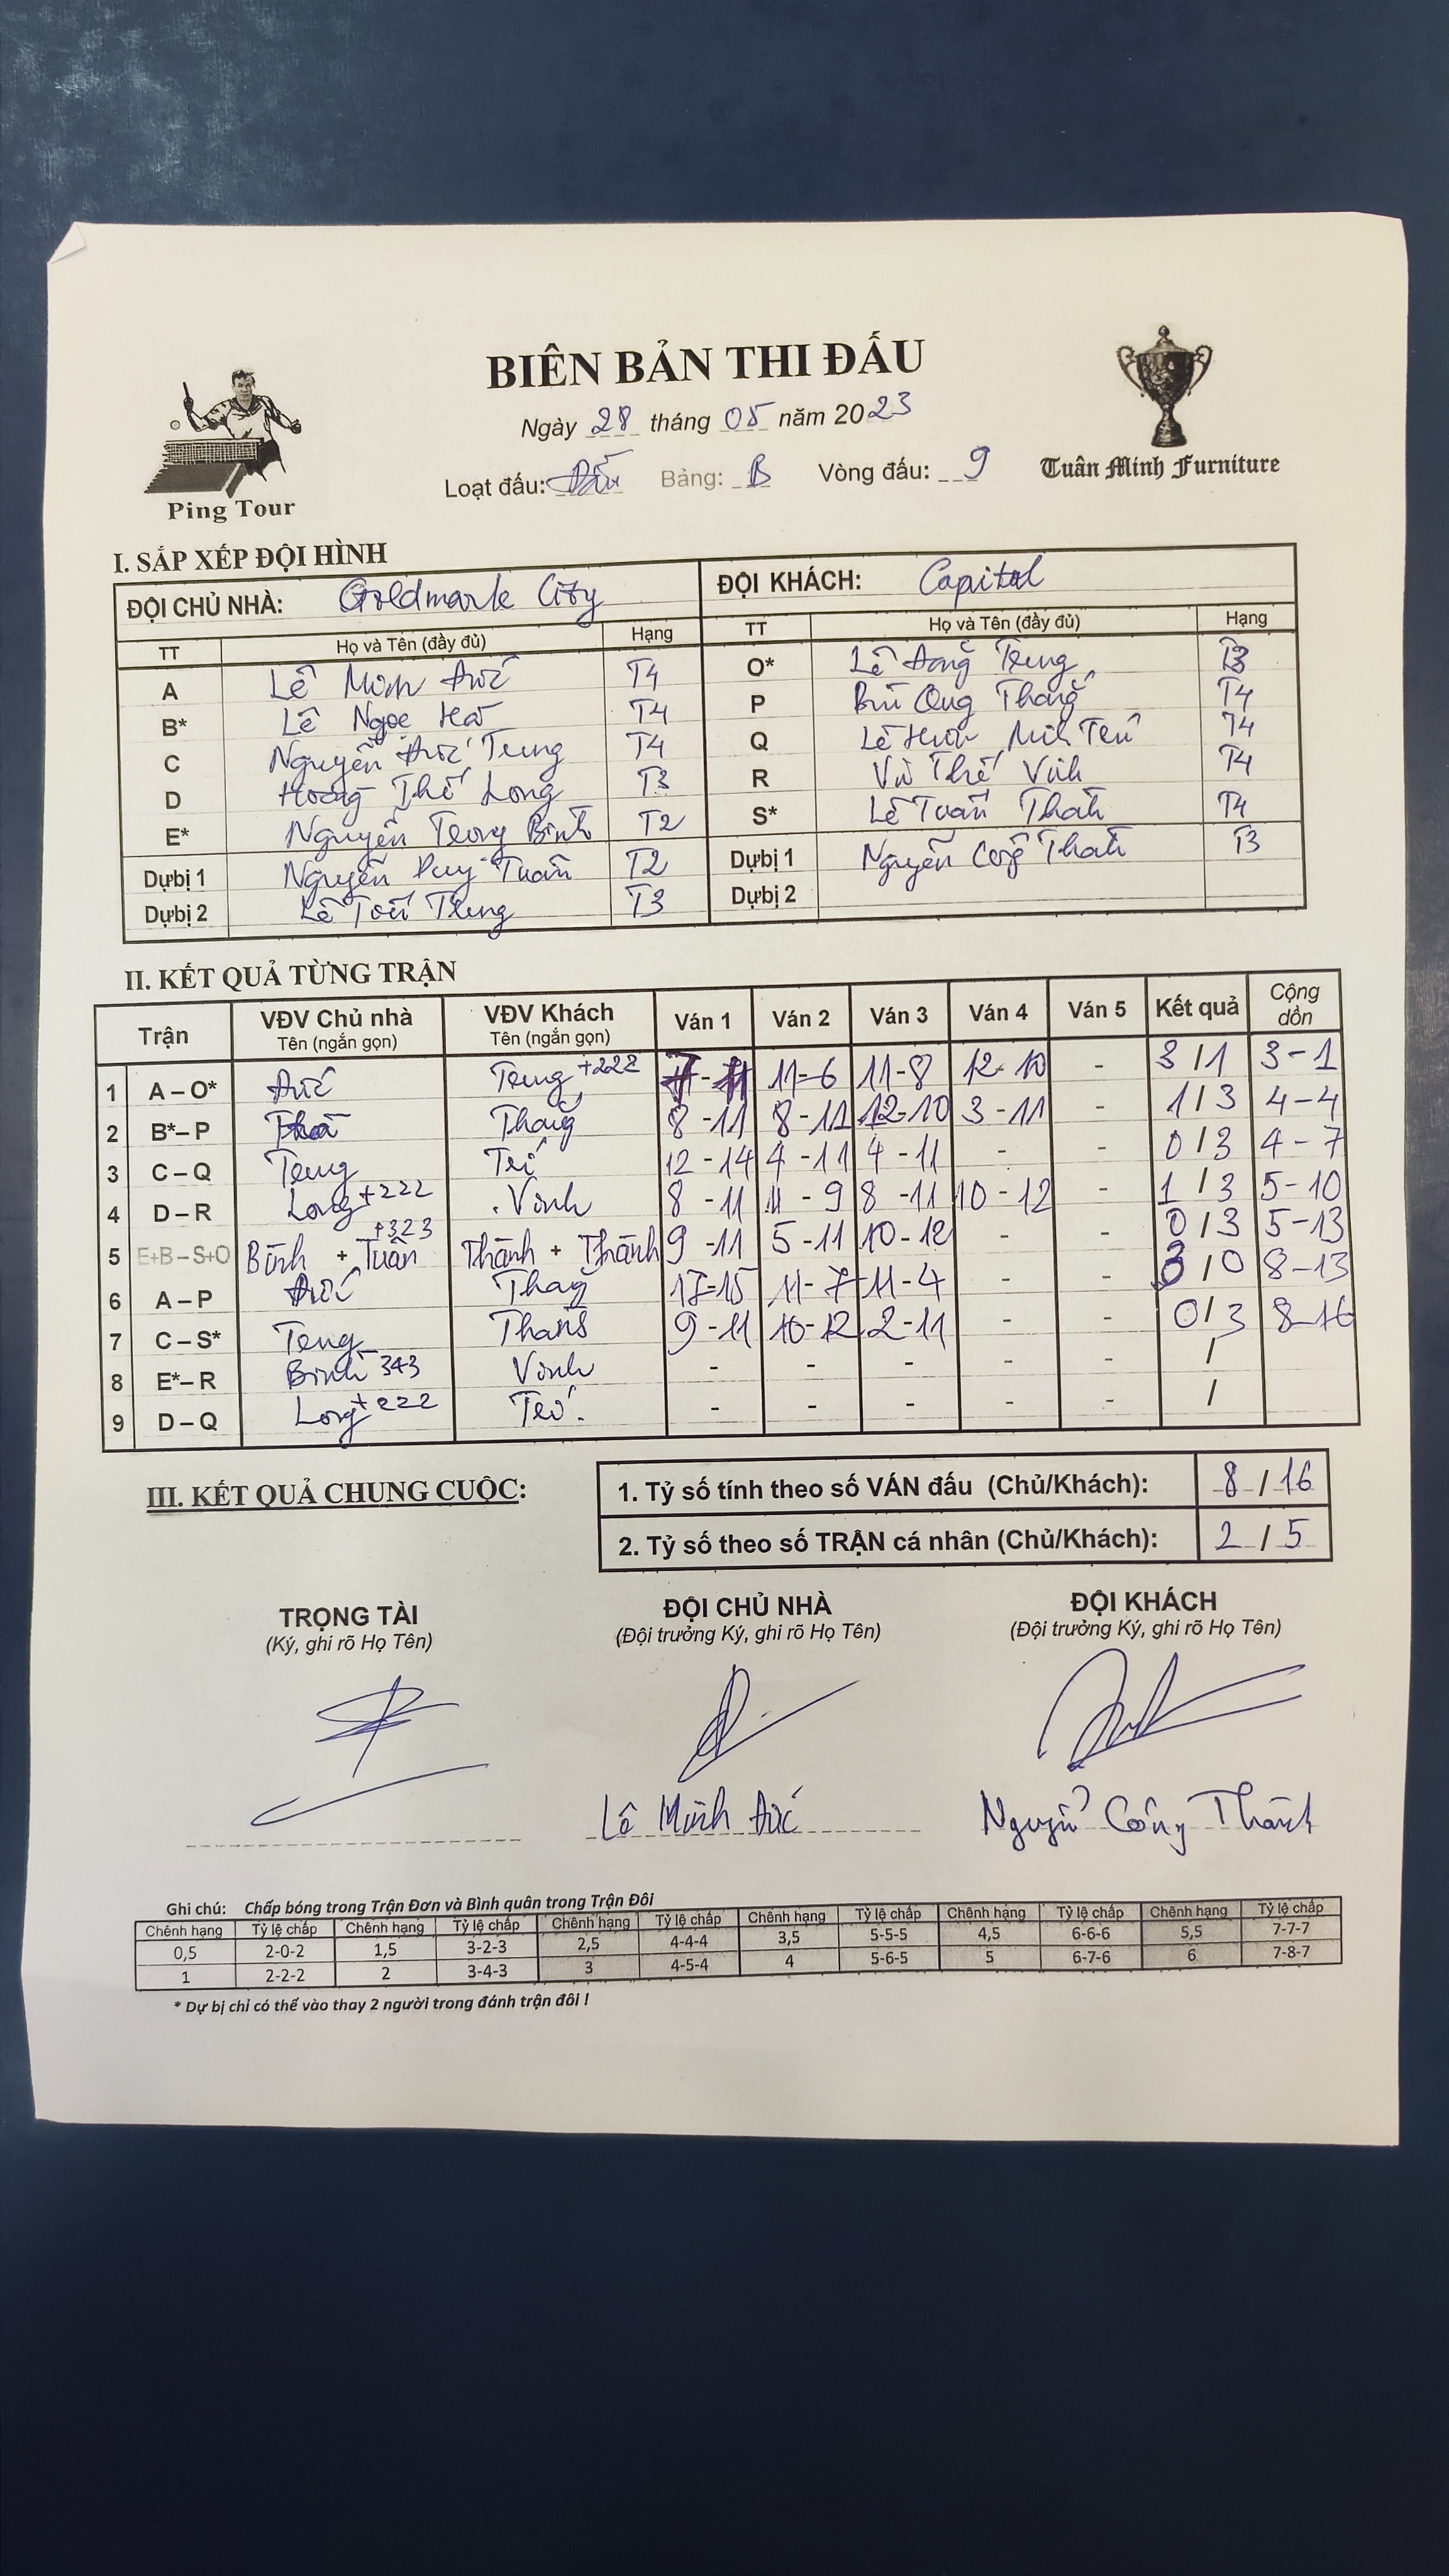 BIÊN BẢN THI ĐẤU
Ngày 28 tháng 05 năm 2023
Loạt đấu: Bảng: B Vòng đấu: 9
Ping Tour
Tuân Minh Furniture
I. SẮP XẾP ĐỘI HÌNH
ĐỘI CHỦ NHÀ: Goldmark City ĐỘI KHÁCH: Capital
TT Họ và Tên (đầy đủ) Hạng TT Họ và Tên (đầy đủ) Hạng
A Lê Minh Đức T4 O* Lê Trung T3
B* Lê Ngọc T4 P Bùi Thắng T4
C Nguyễn Đức Trung T4 Q Lê T4
D Hoàng Thế Long T3 R Vũ Thế Vinh T4
E* Nguyễn Trọng Bình T2 S* Lê Tuấn Thành T4
Dự bị 1 Nguyễn Duy Tuân T2 Dự bị 1 Nguyễn Công Thành T3
Dự bị 2 Lê Trung T3 Dự bị 2
II. KẾT QUẢ TỪNG TRẬN
Trận VĐV Chủ nhà Tên (ngắn gọn) VĐV Khách Tên (ngắn gọn) Ván 1 Ván 2 Ván 3 Ván 4 Ván 5 Kết quả Cộng dồn
1 A – O* Đức Trung +222 - 11-6 11-8 12-10 - 3/1 3-1
2 B*– P Thắng 8-11 8-11 12-10 3-11 - 1/3 4-4
3 C – Q Trung Trí 12-14 4-11 4-11 - - 0/3 4-7
4 D – R Long +222 Vinh 8-11 11-9 8-11 10-12 - 1/3 5-10
5 E+B – S+O Bình + Tuân +323 Thành + Thành 9-11 5-11 10-12 - - 0/3 5-13
6 A – P Đức Thắng 17-15 11-7 11-4 - - 3/0 8-13
7 C – S* Trung Thành 9-11 10-12 2-11 - - 0/3 8-16
8 E*– R Bình 343 Vinh - - - - - /
9 D – Q Long +222 Trí - - - - - /
III. KẾT QUẢ CHUNG CUỘC:
1. Tỷ số tính theo số VÁN đấu (Chủ/Khách): 8 / 16
2. Tỷ số theo số TRẬN cá nhân (Chủ/Khách): 2 / 5
TRỌNG TÀI ĐỘI CHỦ NHÀ ĐỘI KHÁCH
(Ký, ghi rõ Họ Tên) (Đội trưởng Ký, ghi rõ Họ Tên) (Đội trưởng Ký, ghi rõ Họ Tên)
Lê Minh Đức Nguyễn Công Thành
Ghi chú: Chấp bóng trong Trận Đơn và Bình quân trong Trận Đôi
Chênh hạng Tỷ lệ chấp Chênh hạng Tỷ lệ chấp Chênh hạng Tỷ lệ chấp Chênh hạng Tỷ lệ chấp Chênh hạng Tỷ lệ chấp Chênh hạng Tỷ lệ chấp
0,5 2-0-2 1,5 3-2-3 2,5 4-4-4 3,5 5-5-5 4,5 6-6-6 5,5 7-7-7
1 2-2-2 2 3-4-3 3 4-5-4 4 5-6-5 5 6-7-6 6 7-8-7
* Dự bị chỉ có thể vào thay 2 người trong đánh trận đôi !